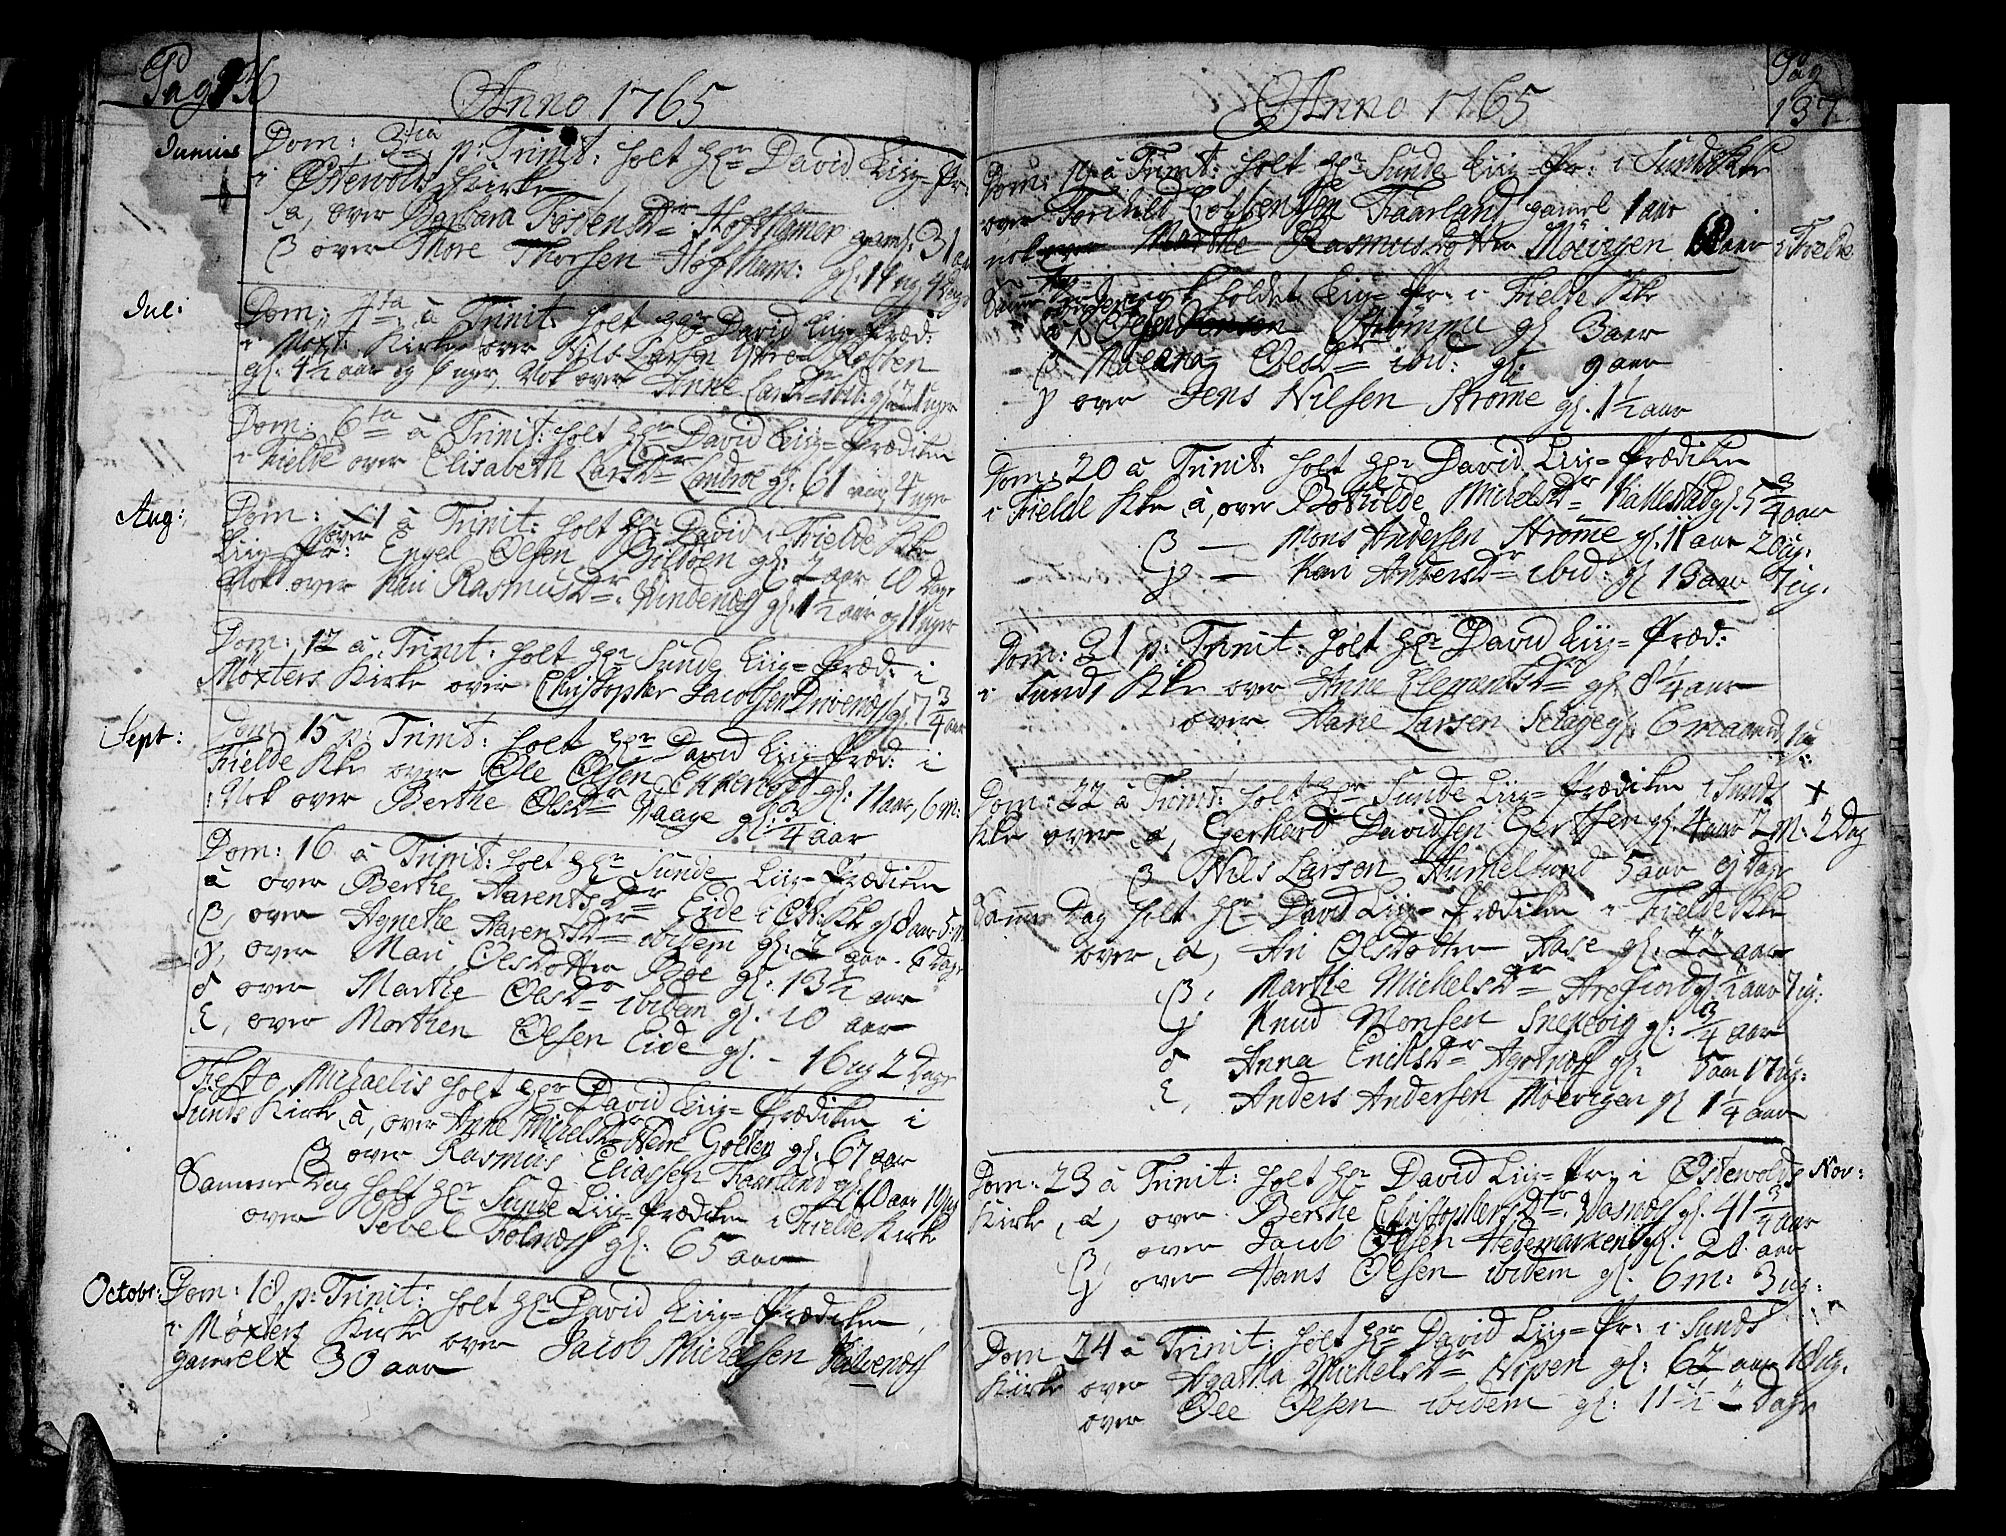 Pag 136
Anno 1765
Junius
Dom: 3tia p: Trinit: holt Hr David Liig-Pr:
i Østevolds Kirke
a, over Barbara Tostensdr Hopshamer gaml: 31 aar
β over Thore Thorsen Hopsham: gl: 14 ug 4 dage
Jul:
Dom: 4ta à Trinit: holt Hr David Liig-Præd:
i Møxt: Kirke over Nils Larsen Østre Løbben
gl: 4½ aar og uger, Nok over Anne Larsdr ibid: gl: 21 uger
Dom: 6ta à Trinit: holt Hr David Liig-Prædiken
i Fielde over Elisabeth Larsdr Landroe gl: 61 aar 4 uger
Aug:
Dom: 11 à Trinit: holt Hr David i Fielde Kke
Liig-Pr: over Engel Olsen Bildøen gl: 2 aar 10 Dage
Nok over Kari Rasmusdr Vindenæs gl: 1½ aar og 11 uger
Dom: 12 à Trinit: holt Hr Sunde Liig-Præd: i
Møxters Kirke over Christopher Jacobsen Drivenæs gl: 7¾ aar
Sept:
Dom: 15 p: Trinit: holt Hr David Liig-Præd: i
Fielde Kke over Ole Olsen gl: 11 aar, 6 m:
Nok over Berthe Olsdr Waage gl: ¾ aar
Dom: 16 à Trinit: holt Hr Sunde Liig-Prædiken
a over Berthe Aarentsdr Eide i Kke gl 8 aar 5
β, over Agnethe Aarentsdr ibidem gl: 2 aar 6 dage
γ, over Mari Olsdotter Boe gl: 13½ aar
δ over Marthe Olsdr ibidem gl. 10 aar
ε, over Morthen Olsen Eide gl. - 16 ug 2 Dage
Festo Michaelis holt Hr David Liig-Prædiken i
Sunds Kirke a, over Anne Michelsdr Nedre Golten gl: 67 aar
β over Rasmus Eliassen Faarland gl: 10 aar 19 ug
Samme Dag holt Hr Sunde Liig-Prædiken i Fielde Kirke
over Sebel Folnæs gl: 65 aar
Octobr:
Dom: 18 p: Trinit: holt Hr David Liig-Prædiken
i Møxters Kirke over Jacob Michelsen Halvenæs
gamelt 30 aar
Pag 137
Anno 1765
Dom: 19 à Trinit: holt Hr Sunde Liig-Pr: i Sunds Kke
over Torchild Faarland gamel 1 aar
nok over Marthe Rasmusdotter Møvigen 60 aar i Fielde
Samme Dag holdet Liig-Pr: i Fielde Kke
a Olsen Strømme gl 3 aar
β Malena Olsdr ibid: gl: 9 aar
γ over Jens Nilsen Strøme gl. 1½ aar
Dom: 20 à Trinit: holt Hr David Liig-Prædiken
i Fielde Kke a, over Bothilde Michelsdr Kallestad gl. 5¾ aar
β — Mons Andersen Strøme gl: 11 aar 20 ug:
γ — Kari Andersdr ibid: gl 13 aar 7 ug.
Dom: 21 p: Trinit: holt Hr David Liig-Præd:
i Sunds Kke over Anne Clementsdr gl. 8¼ aar
over Hane Larsen Selage gl. 6 maaned 1 u
Dom: 22 à Trinit: holt Hr Sunde Liig-Prædiken i Sunds +
Kke over a, Gerhard Davidsen Gerthsen gl. 4 aar 2 M: 2 Dag
β Nils Larsen Hummelsund 5 aar 9 dage
Samme Dag holt Hr David Liig-Prædiken i Fielde Kke
over a, Ari Olsdotter Hase gl: 22 aar
β, Marthe Michelsdr Arefiord gl: ½ aar 7 ug:
γ Knud Monsen Snekevig gl: ¾ aar
δ Anna Eriksdr Agotnæs gl: 5 aar 17 ug:
ε, Anders Andersen Møevigen gl 1¼ aar
Dom: 23 à Trinit: holt Hr David Liig-Pr, i Østevolds Nov:
Kirke, a, over Berthe Christophersdtr: Vasnæs gl. 41¾ aar
β over Jacob Olsen Hedemarken gl. 20. aar
γ over Hans Olsen ibidem gl. 6 m: 3 ug:
Dom 24 à Trinit: holt Hr David Liig-Pr: i Sunds
Kirke over Agatha Michelsdr Nipen gl: 62 aar 18 ug.
over Ole Olsen ibidem gl: Dage